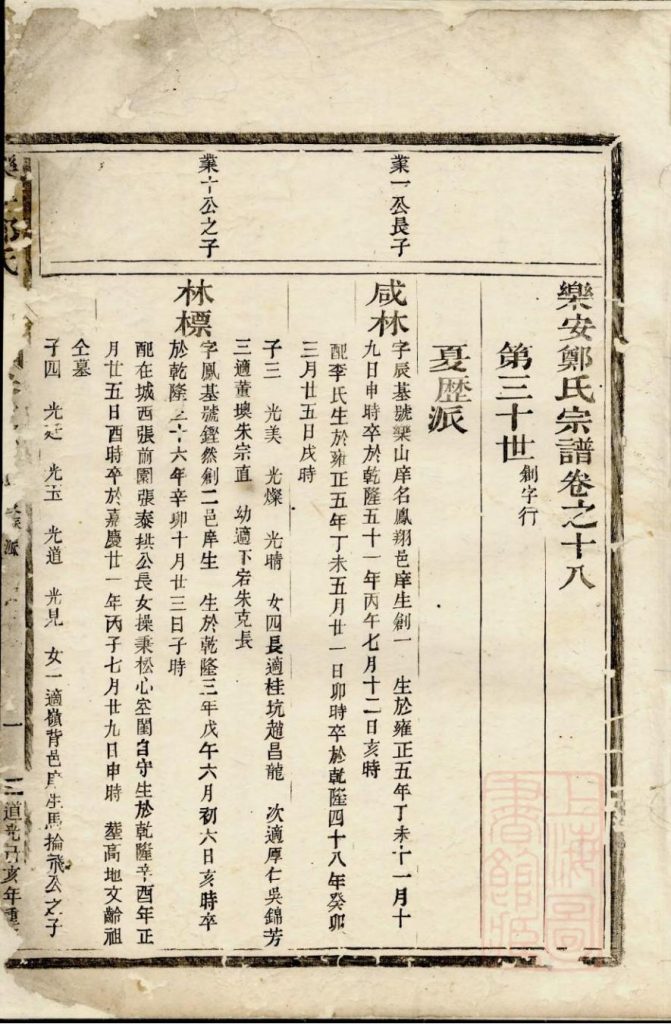 樂安鄭氏宗譜卷之十八
第三十世 創字行
夏歷派
業一公長子
咸林
字辰基號樂山庠名鳳翔邑庠生創一 生於雍正五年丁未十一月十
九日申時卒於乾隆五十一年丙午七月十二日亥時
配李氏生於雍正五年丁未五月廿一日卯時卒於乾隆四十八年癸卯
三月廿五日戌時
子三 光美 光燦 光晴 女四長適桂坑趙昌龍 次適厚仁吳錦芳
三適董塽朱宗直 幼適下宕朱克長
業十公之子
林標
字鳳基號鏗然創二邑庠生 生於乾隆三年戊午六月初六日亥時卒
於乾隆三十六年辛卯十月廿三日子時
配在城西張前園張泰拱公長女操秉松心空閨自守生於乾隆辛酉年正
月廿五日酉時卒於嘉慶廿一年丙子七月廿九日申時 塟高地文齡祖
仝墓
子四 光廷 光玉 光道 光見 女一適嶺背邑庠生馬掄飛公之子
一
道光己亥年重
上海圖書館藏